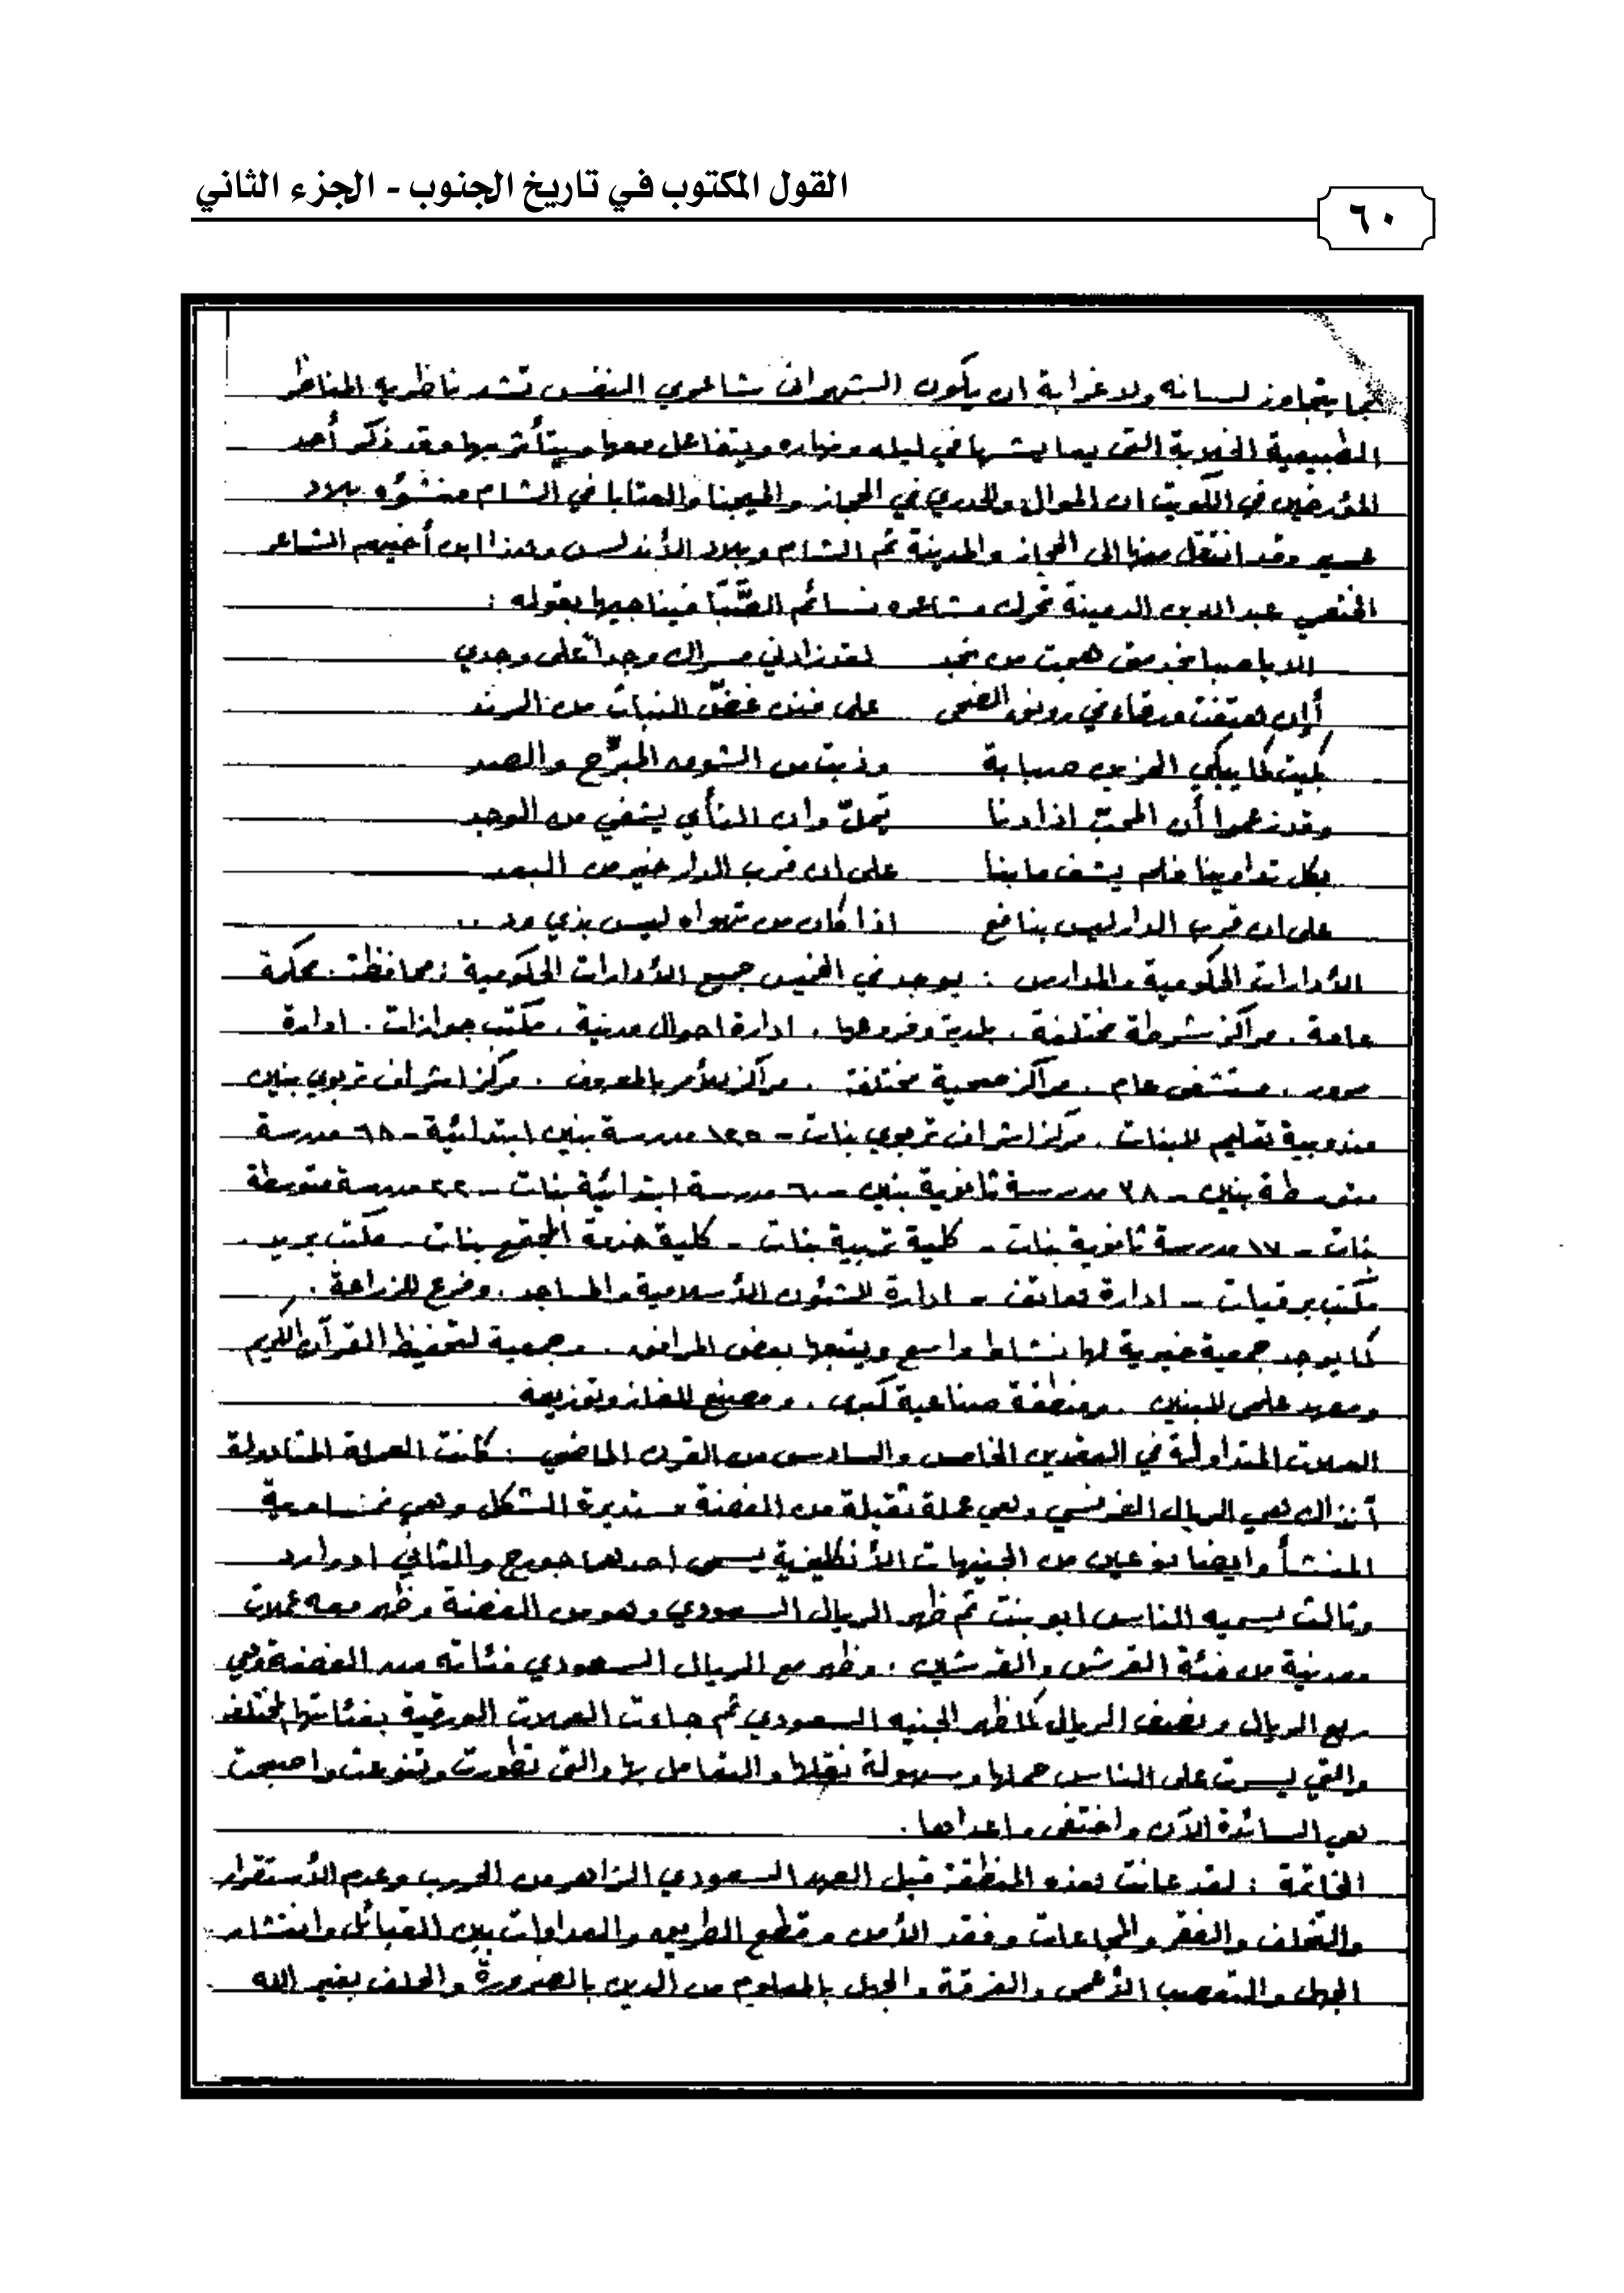 القول المكتوب في تاريخ الجنوب - الجزء الثاني
٦٠
بما يتجاوز لسانه ولا غرابة ان يكون الشهراني شاعري النفس تشد ناظريه المناظر
الطبيعية الخلابة التي يعايشها في ليله ونهاره ويتفاعل معها ويتأثر بها وقد ذكر أحد
المؤرخين في الكويت ان الموال والحدري في الحجاز والميجنا والعتابا في الشام منشؤه بلاد
عسير وقد انتقل منها الى الحجاز والمدينة ثم الشام وبلاد الأندلس وهذا ابن أخيهم الشاعر
الخثعمي عبدالله بن الدمينة تحرك مشاعره نسائم الصَّبَا فيناجيها بقوله :
الا يا صبا نجد متى هجت من نجد لقد زادني مسراك وجداً على وجدي
أإن هتفت ورقاء في رونق الضحى على فنن غضّ النبات من الرند
بكيت كما يبكي الحزين صبابة وذبت من الشوق المبرّح والصد
وقد زعموا أن المحبّ اذا دنا يَملّ وان النأي يشفي من الوجد
بكل تداوينا فلم يشف ما بنا على ان قرب الدار خير من البعد
على ان قرب الدار ليس بنافع اذا كان من تهواه ليس بذي ود ..
الأدارات الحكومية والمدارس : يوجد في الخميس جميع الأدارات الحكومية : محافظة . محكمة
عامة . مراكز شرطة مختلفة . بلدية وفروعها . ادارة احوال مدنية . مكتب جوازات . ادارة
مرور . مستشفى عام . مراكز صحية مختلفة . مراكز للأمر بالمعروف . مركز اشراف تربوي بنين
مندوبية تعليم للبنات . مركز اشراف تربوي بنات - ١٢٥ مدرسة بنين ابتدائية - ٦٨ مدرسة
متوسطة بنين - ٣٨ مدرسة ثانوية بنين - ٦٠ مدرسة ابتدائية بنات - ٢٢ مدرسة متوسطة
بنات - ١٧ مدرسة ثانوية بنات - كلية تربية بنات - كلية خدمة المجتمع بنات - مكتب بريد .
مكتب برقيات - ادارة هاتف - ادارة للشئون الأسلامية والمساجد . وفرع للزراعة .
كما يوجد جمعية خيرية لها نشاط واسع ويتبعها بعض المرافق . وجمعية لتحفيظ القرآن الكريم
ومعهد علمي للبنين . ومنطقة صناعية كبرى . ومصنع للغاز وتوزيعه
العملات المتداولة في العقدين الخامس والسادس من القرن الماضي : كانت العملة المتداولة
آنذاك هي الريال الفرنسي وهي عملة ثقيلة من الفضة مستديرة الشكل وهي نمساوية
المنشأ وايضا نوعين من الجنيهات الأنكليزية يسمى احدهما جورج والثاني ادوارد
وثالث يسميه الناس ابو بنت ثم ظهر الريال السعودي وهو من الفضة وظهر معه عملات
معدنية من فئة القرش والقرشين . وظهر مع الريال السعودي فئاته من الفضة وهي
ربع الريال ونصف الريال كما ظهر الجنيه السعودي ثم جاءت العملات الورقية بفئاتها المختلفة
والتي يسرت على الناس حملها وسهولة نقلها والتعامل بها والتي تطورت وتنوعت واصبحت
هي السائدة الآن واختفى ماعداها .
الخاتمة : لقد عانت هذه المنطقة قبل العهد السعودي الزاهر من الحروب وعدم الأستقرار
والتخلف والفقر والمجاعات وفقد الأمن وقطع الطريق والعداوات بين القبائل وانتشار
الجهل والتعصب الأعمى والفرقة والجهل بالمعلوم من الدين بالضرورة والحلف بغير الله